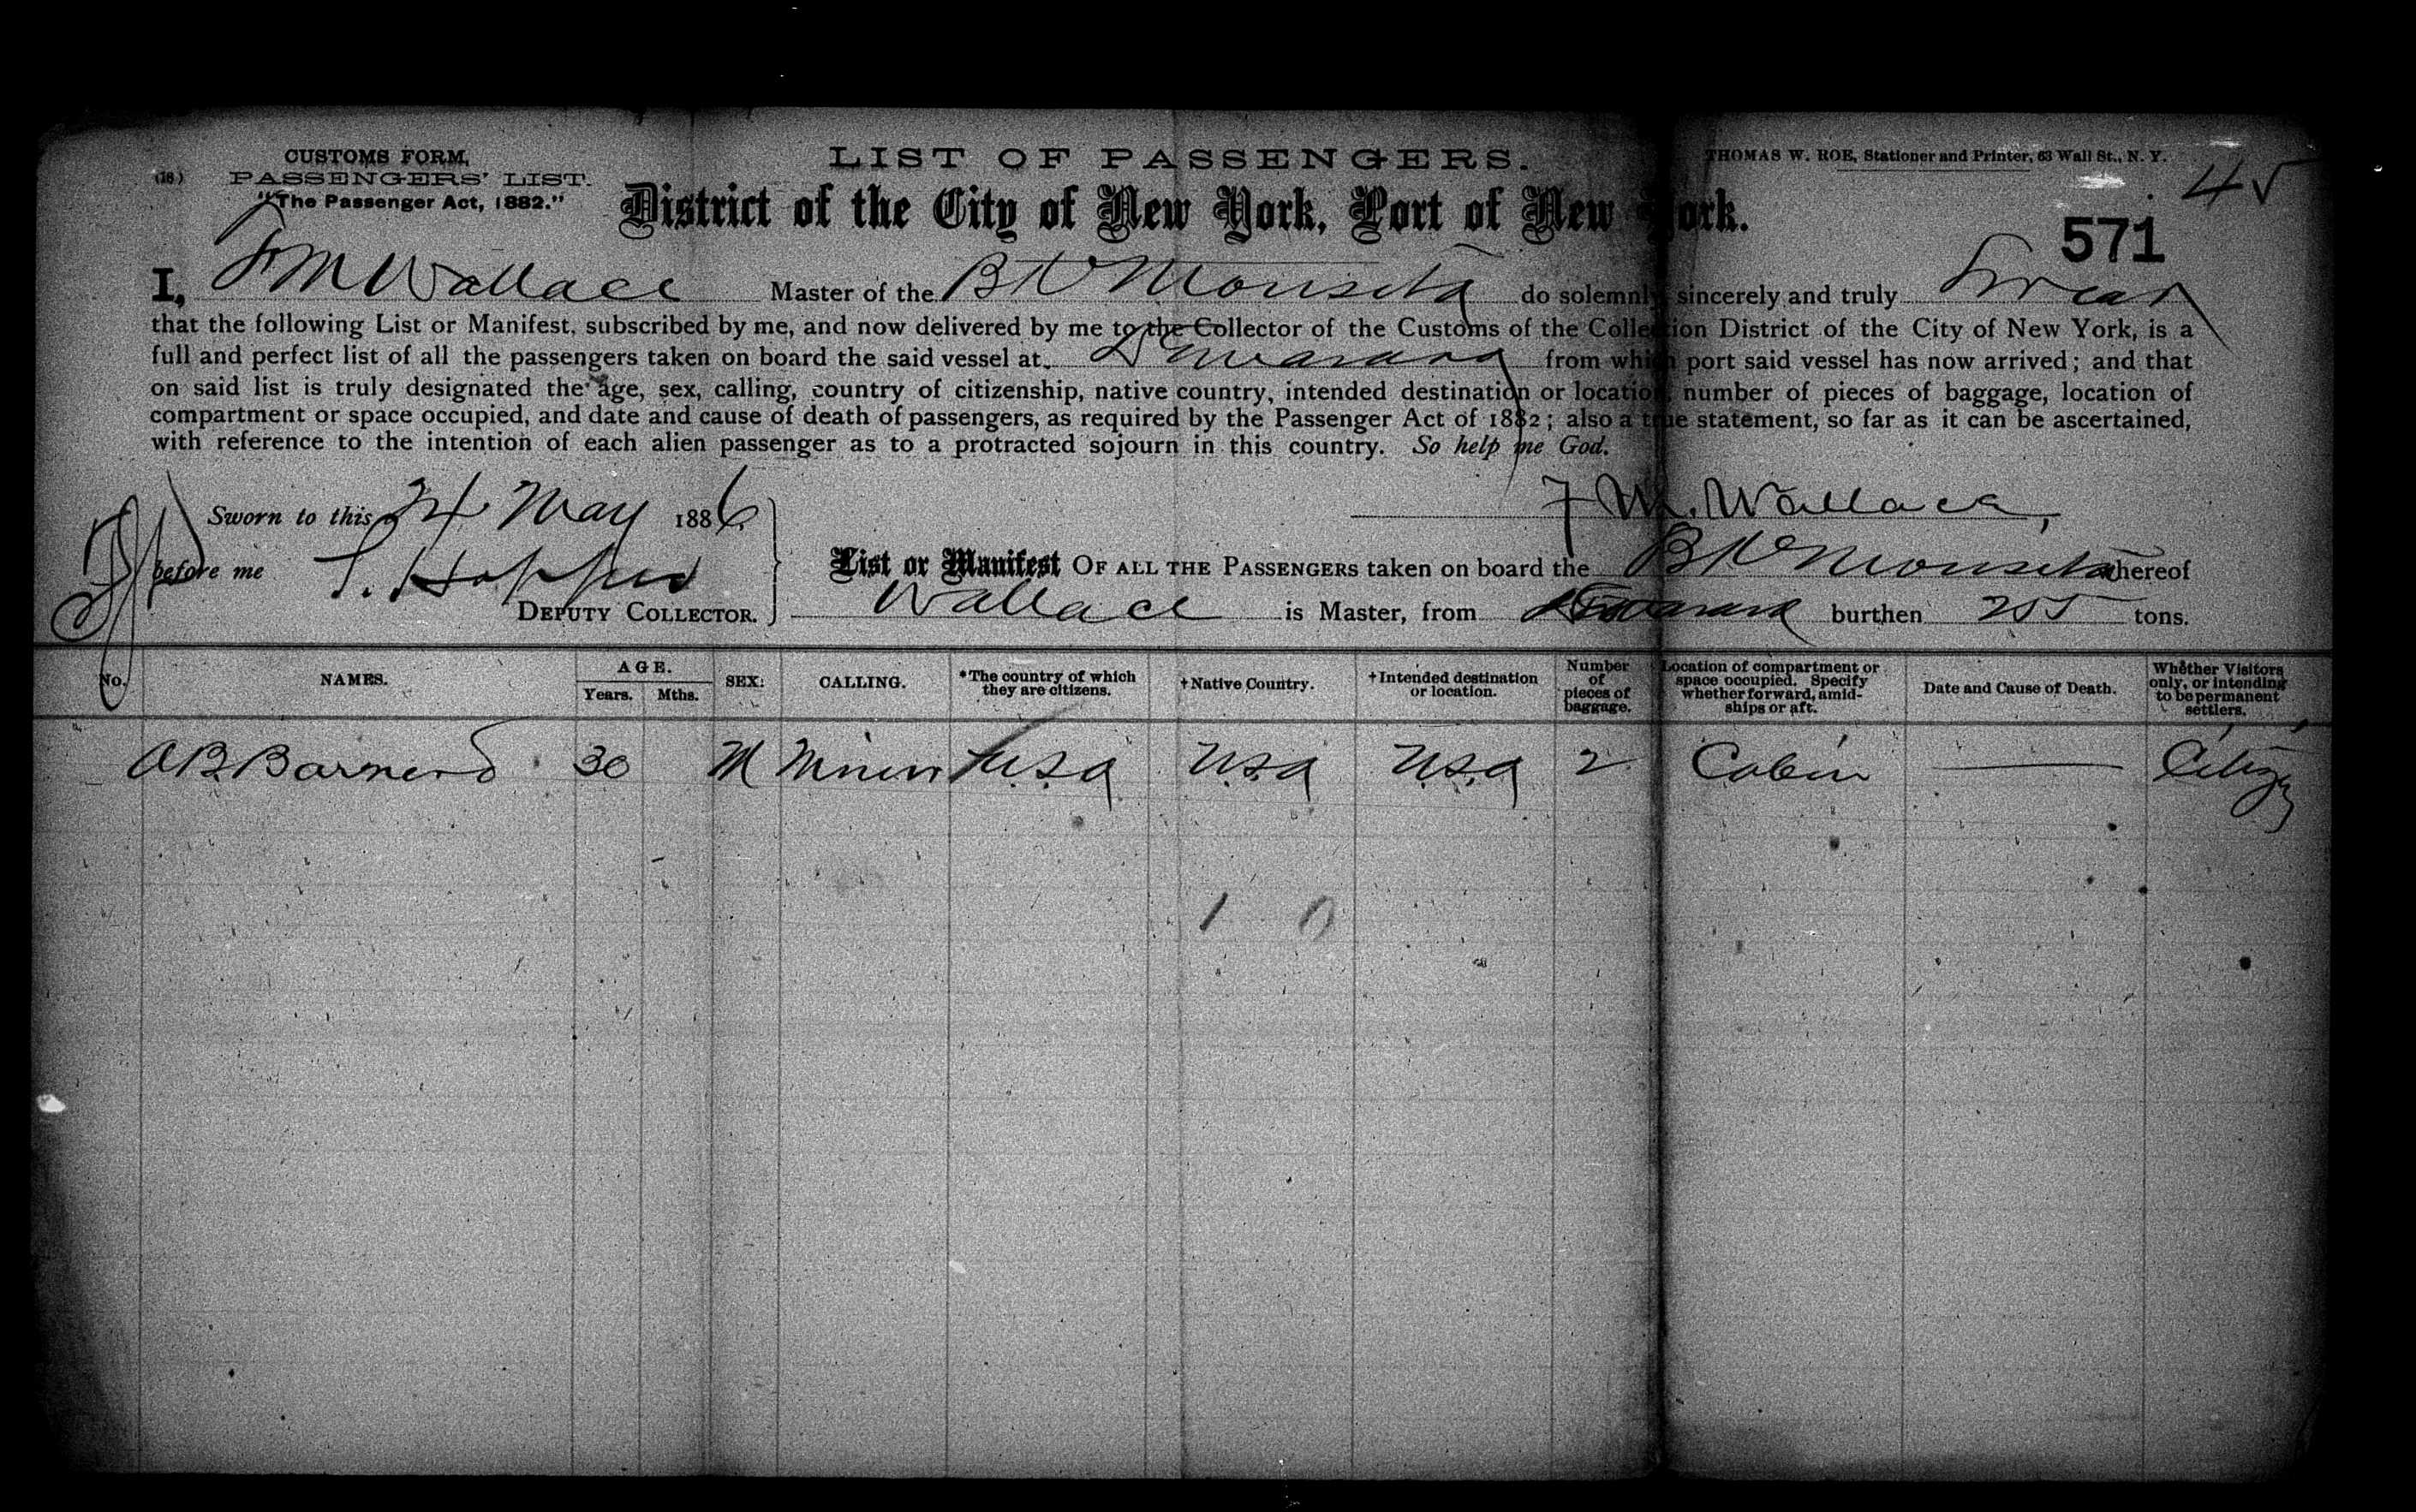 CUSTOMS FORM,
(18.) PASSENGERS' LIST.
"The Passenger Act, 1882."
LIST OF PASSENGERS.
THOMAS W. ROE, Stationer and Printer, 63 Wall St., N. Y.
District of the City of New York, Port of New York.
571
I, F M Wallace Master of the do solemnly, sincerely and truly Swear
that the following List or Manifest, subscribed by me, and now delivered by me to the Collector of the Customs of the Collection District of the City of New York, is a
full and perfect list of all the passengers taken on board the said vessel at from which port said vessel has now arrived; and that
on said list is truly designated the age, sex, calling, country of citizenship, native country, intended destination or location, number of pieces of baggage, location of
compartment or space occupied, and date and cause of death of passengers, as required by the Passenger Act of 1882; also a true statement, so far as it can be ascertained,
with reference to the intention of each alien passenger as to a protracted sojourn in this country. So help me God.
Sworn to this 24 May 1886 F M. Wallace,
before me
DEPUTY COLLECTOR.
List or Manifest OF ALL THE PASSENGERS taken on board the whereof
Wallace is Master, from burthen 255 tons.
No. NAMES. AGE. Years. Mths. SEX. CALLING. *The country of which they are citizens. †Native Country. †Intended destination or location. Number of pieces of baggage. Location of compartment or space occupied. Specify whether forward, amidships or aft. Date and Cause of Death. Whether Visitors only, or intending to be permanent settlers.
A B Barnerd 30 M Miner U.S.a U.S.a U.S.a 2 Cabin —
1 0